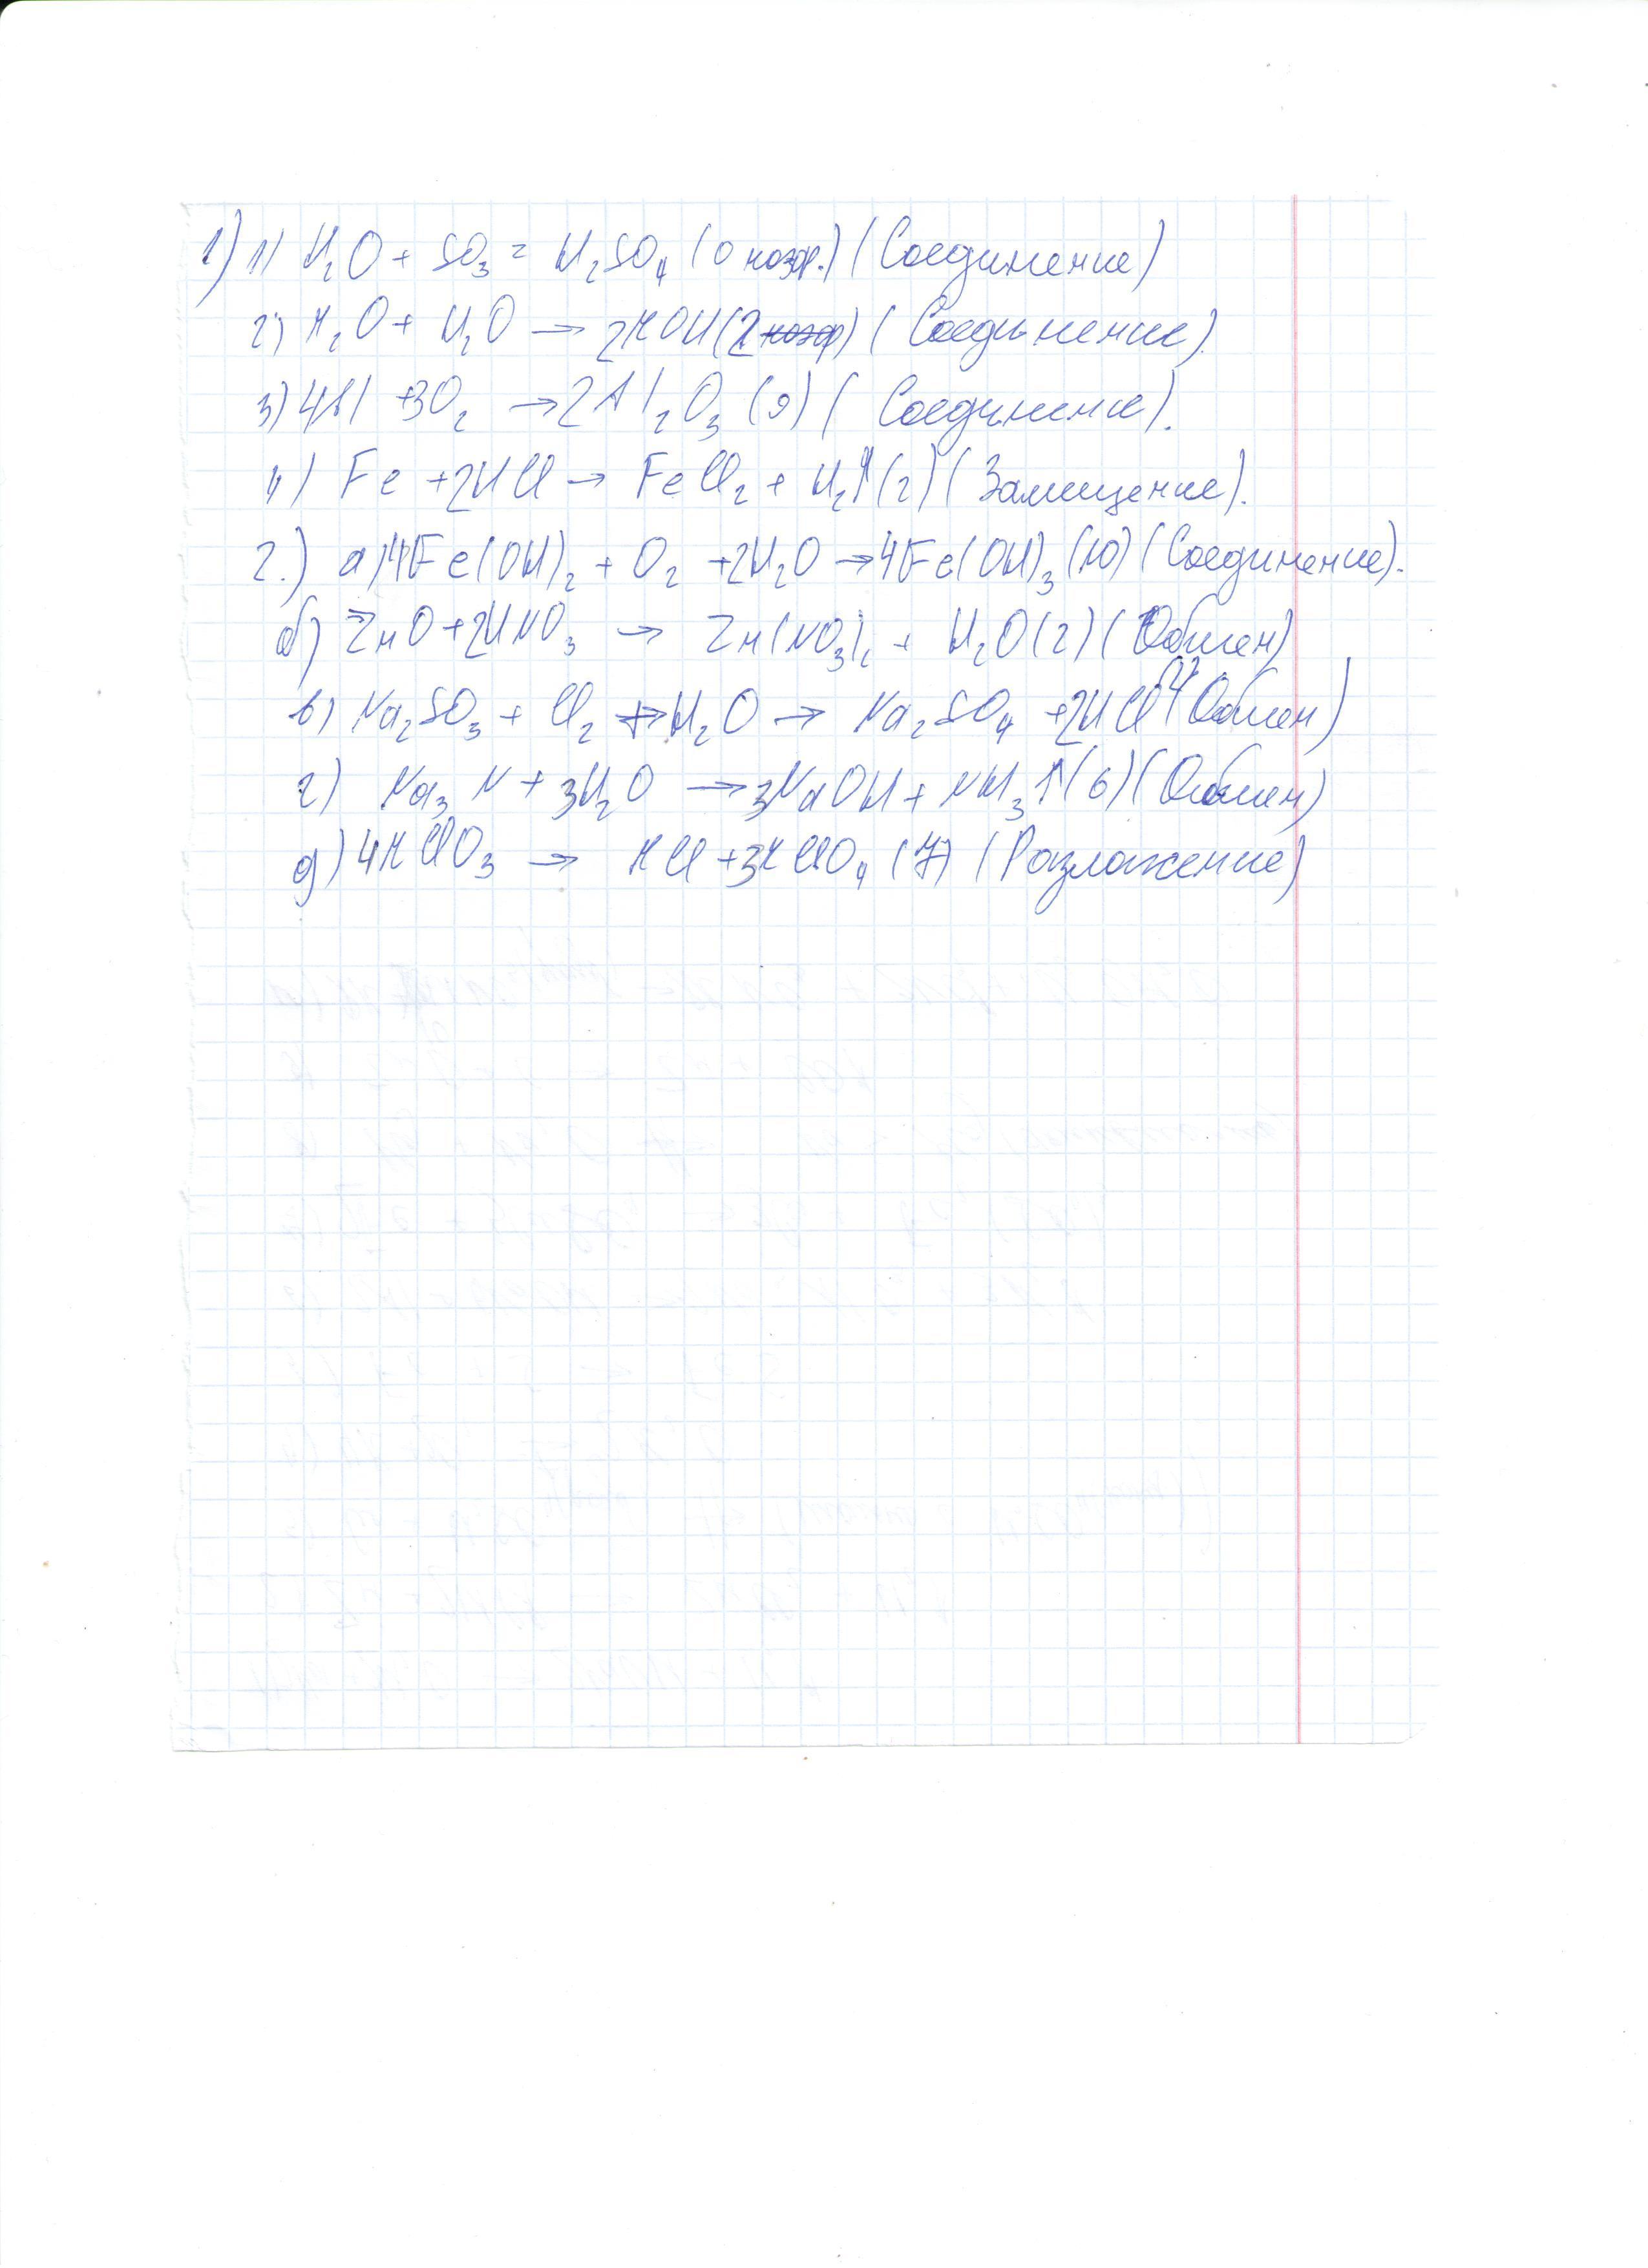 1) 1) H₂O + SO₃ = H₂SO₄ (0 коэф.) (Соединение)
2) K₂O + H₂O → 2KOH (2 коэф) (Соединение).
3) 4Al +3O₂ → 2Al₂O₃ (9) (Соединение).
4) Fe +2HCl → FeCl₂ + H₂↑ (2) (Замещение).
2.) а) 4Fe(OH)₂ + O₂ +2H₂O → 4Fe(OH)₃ (10) (Соединение).
б) ZnO +2HNO₃ → Zn(NO₃)₂ + H₂O (2) (Обмен)
в) Na₂SO₃ + Cl₂ + H₂O → Na₂SO₄ +2HCl (Обмен)
г) Na₃N + 3H₂O → 3NaOH + NH₃↑ (6) (Обмен)
д) 4KClO₃ → KCl +3KClO₄ (7) (Разложение)